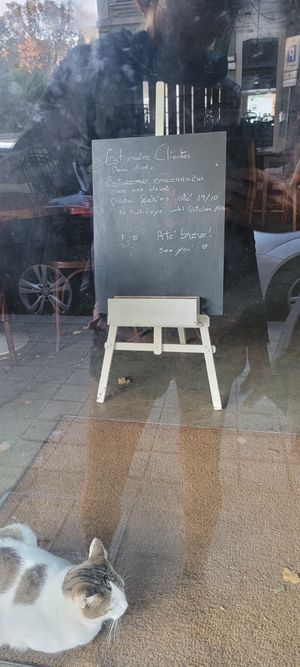 Estimados Clientes
Dear clients
Estaremos encerrados
we are closed
para férias até 19/10
to holidays until October 19th
Até breve!
See you!